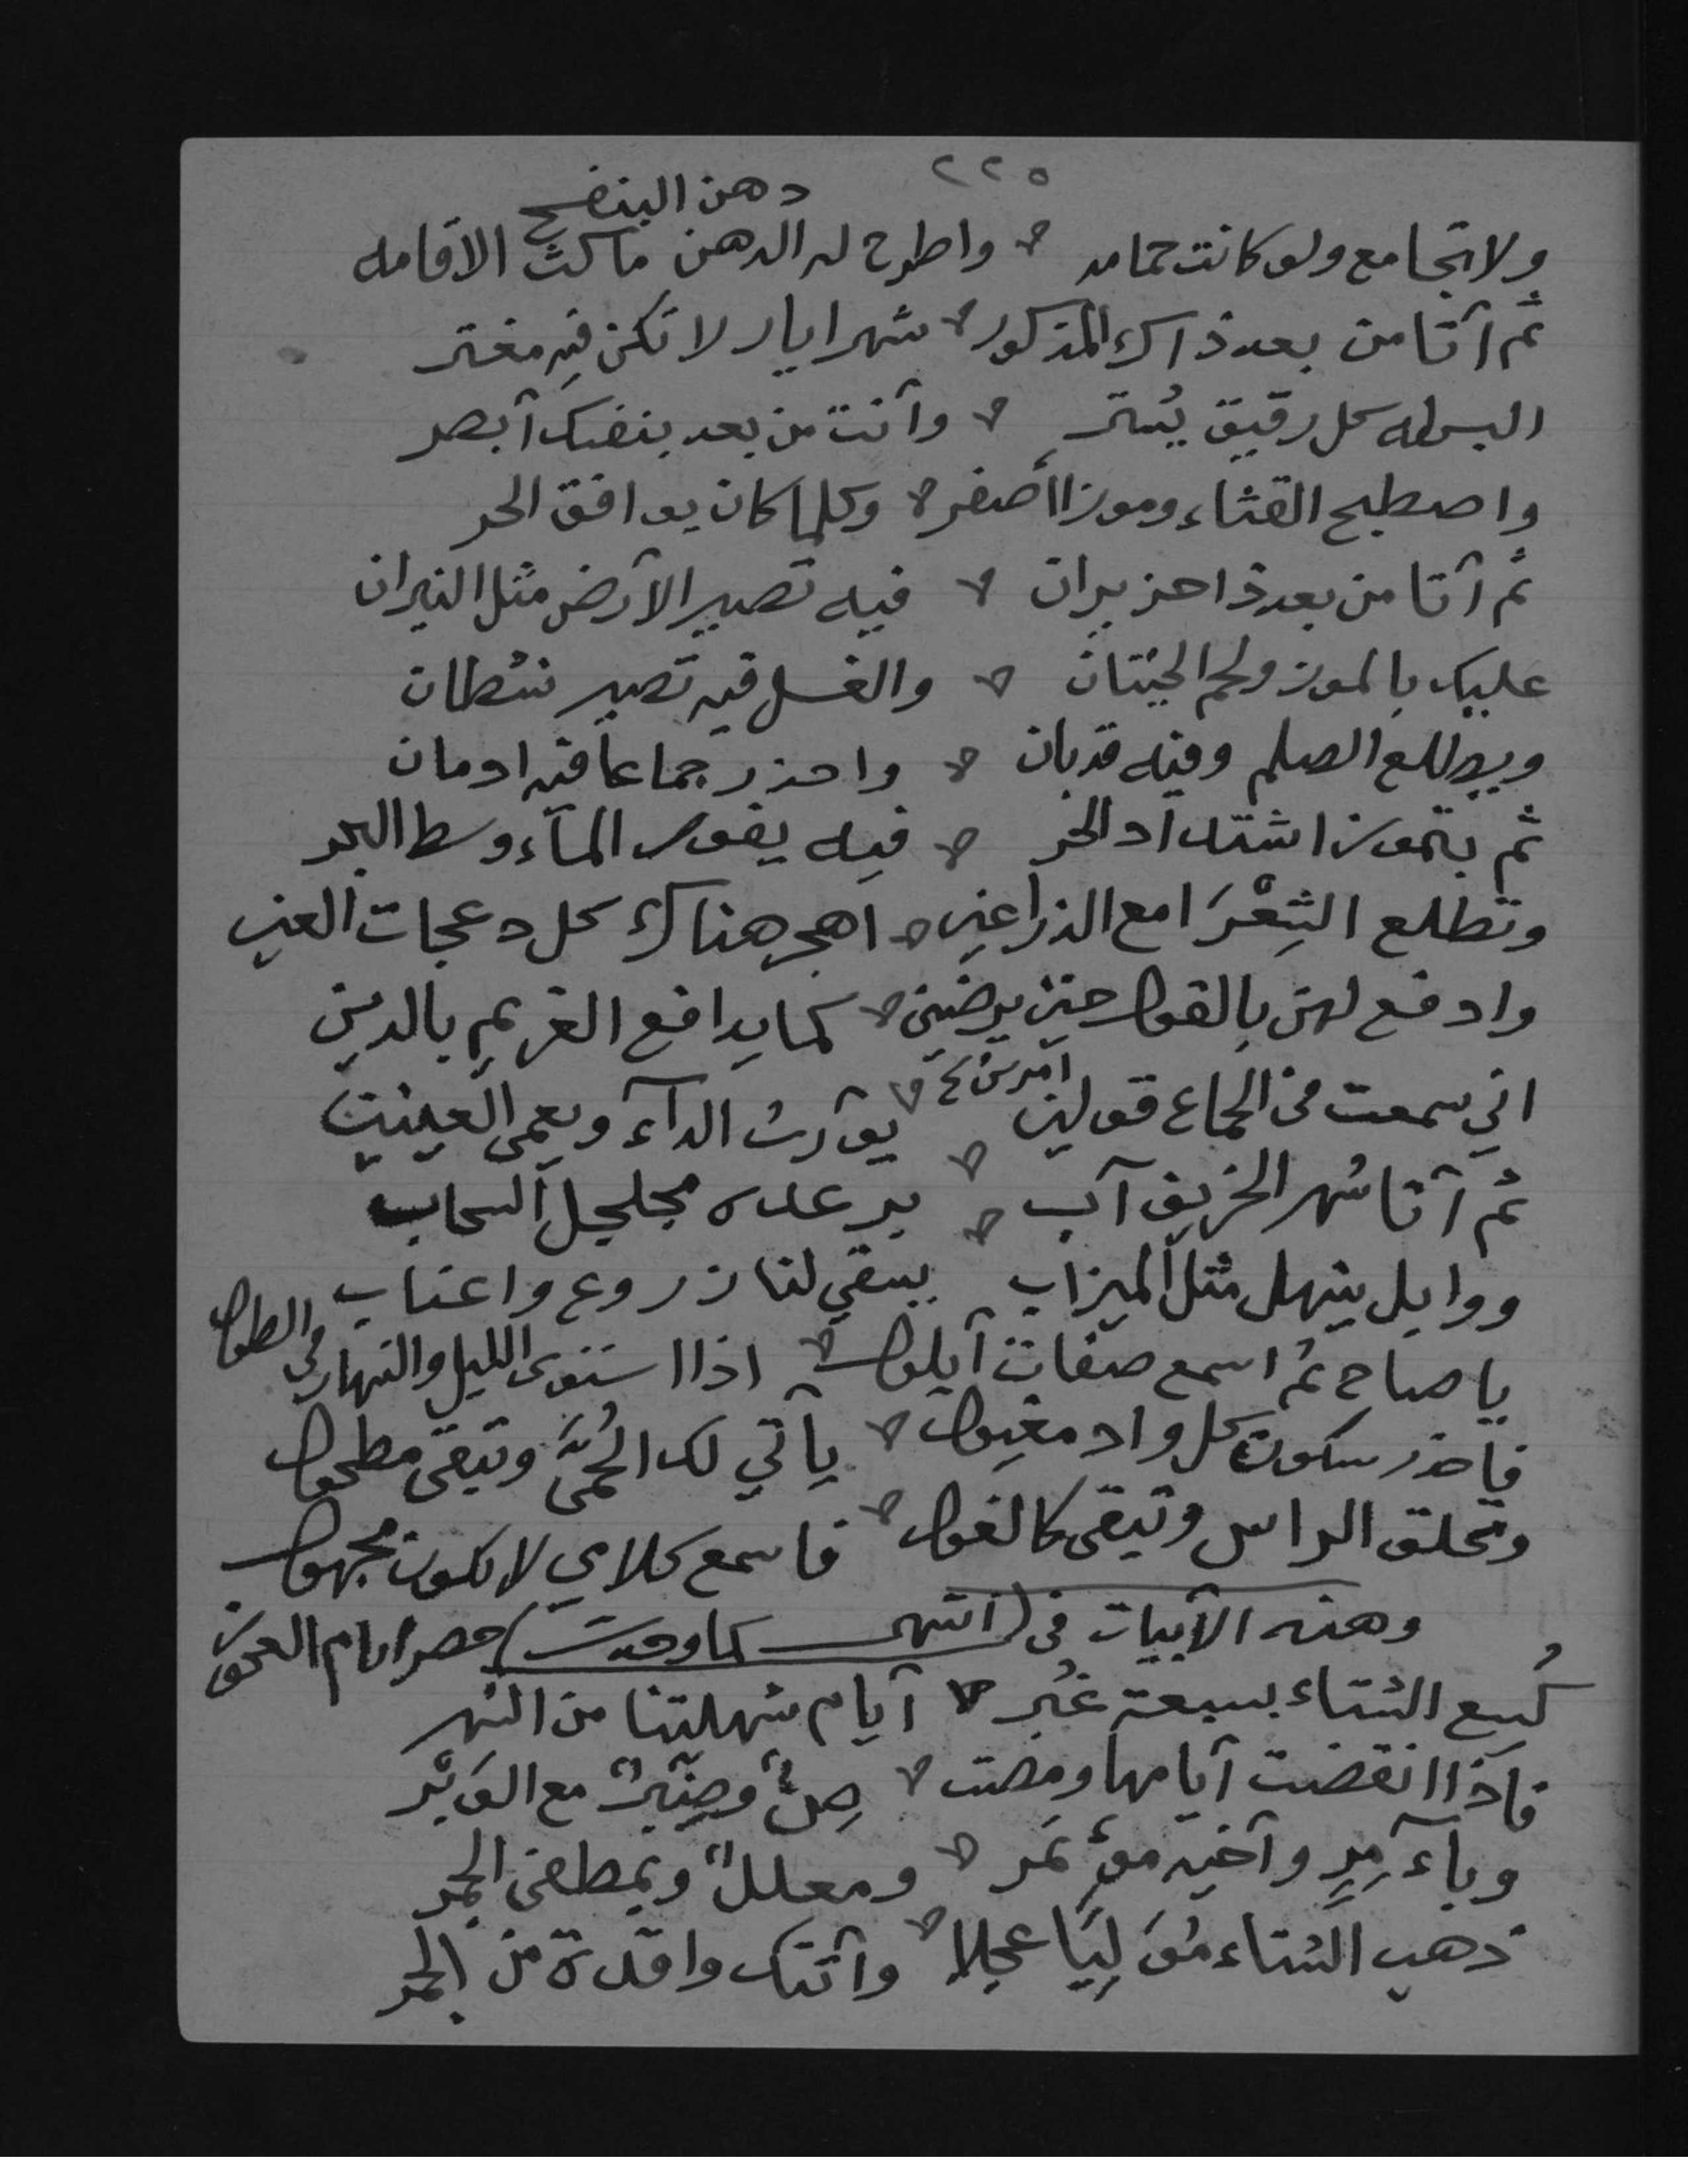 ٢٢٥
دهن البنفسج
ولا تجامع ولو كانت حمامه واطرح له الدهن ما كث الاقامه
ثم آتا من بعد ذاك المذكور شهر ايار لا تكن فيه مغتر
البس له كل رقيق يُستر وآنت من بعد بنفسك آبصر
واصطبح القثاء وموزا أصفر وكلما كان يوافق الحر
ثم آتا من بعد ذا حزيران فيه تصير الآرض مثل النيران
عليك بالموز ولحم الحيتان والغسل فيه تصير نشطان
ويطلع الصلم وفيه قد بان واحذر جماعاً فيه ادمان
ثم بتموز اشتداد الحر فيه يغور المآء وسط البحر
وتطلع الشِعْرَا مع الذراعين اهجر هناك كل دعجات العين
وادفع لهن بالقول حين يرضين كما يدافع الغريم بالدين
اني سمعت في الجماع قولين امرين خ يورث الدآء ويعمي العينين
ثم آتا شهر الخريف آب يرعده مجلجل السحاب
ووابل ينهل مثل الميزاب يسقي لنا زروع واعناب
يا صاح ثم اسمع صفات آيلول اذا استوى الليل والنهار في الطول
فاحذر سكون كل واد مغيول يآتي لك الحُمَّى وتبقى مطحول
وتحلق الراس وتبقى كالغول فاسمع كلامي لا تكون مجهول
وهذه الآبيات في (انتهى كما وجدت) حصر ايام العجوز
كُسع الشتاء بسبعة غُبر آيام شهلتنا من الشهر
فاذا انقضت آيامها ومضت صِنٌّ وصِنَّبرٌ مع الوَبْر
وبآمِرٍ وآخيه مؤتَمر ومعللٌ وبمطفئ الجمر
ذهب الشتاء مُوَلِيَا عجلا وآتتك واقدة من الحر